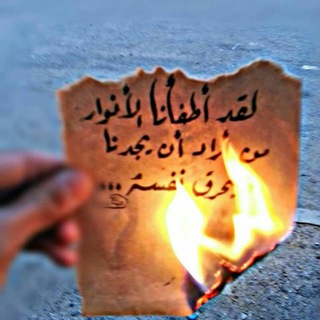 لقد أطفأنا الأنوار
من أراد أن يجدنا
يحرق نفسه...